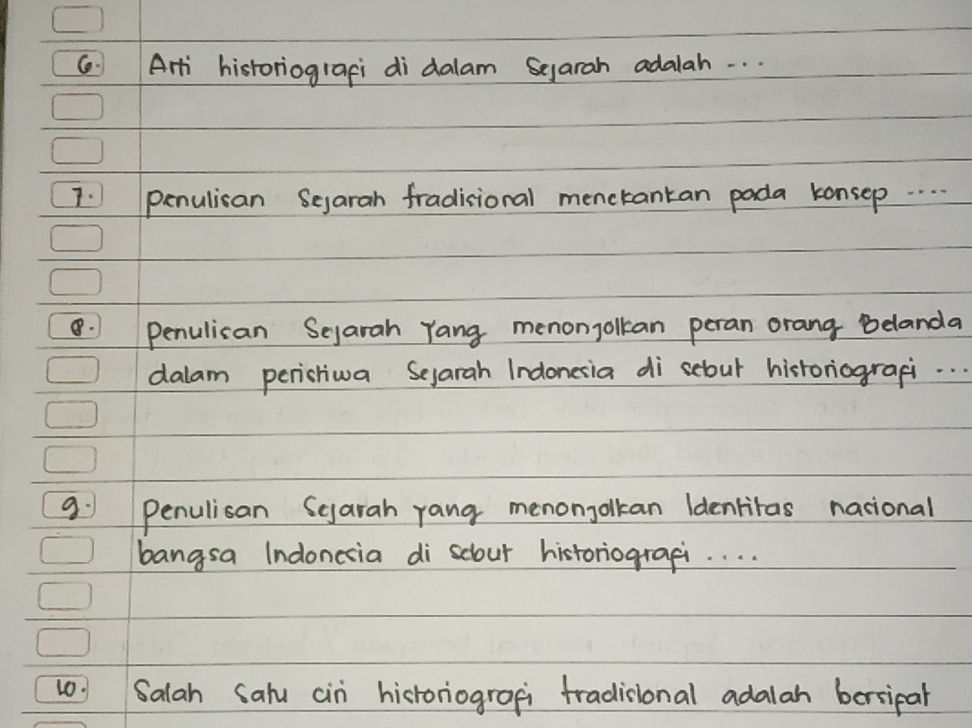 6. Arti historiografi di dalam Sejarah adalah ...
7. Penulisan Sejarah tradisional menekankan pada konsep ....
8. Penulisan Sejarah Yang menonjolkan peran orang Belanda
dalam peristiwa Sejarah Indonesia di sebut historiografi ...
9. Penulisan Sejarah yang menonjolkan Identitas nasional
bangsa Indonesia di sebut historiografi ....
10. Salah Satu ciri historiografi tradisional adalah bersifat